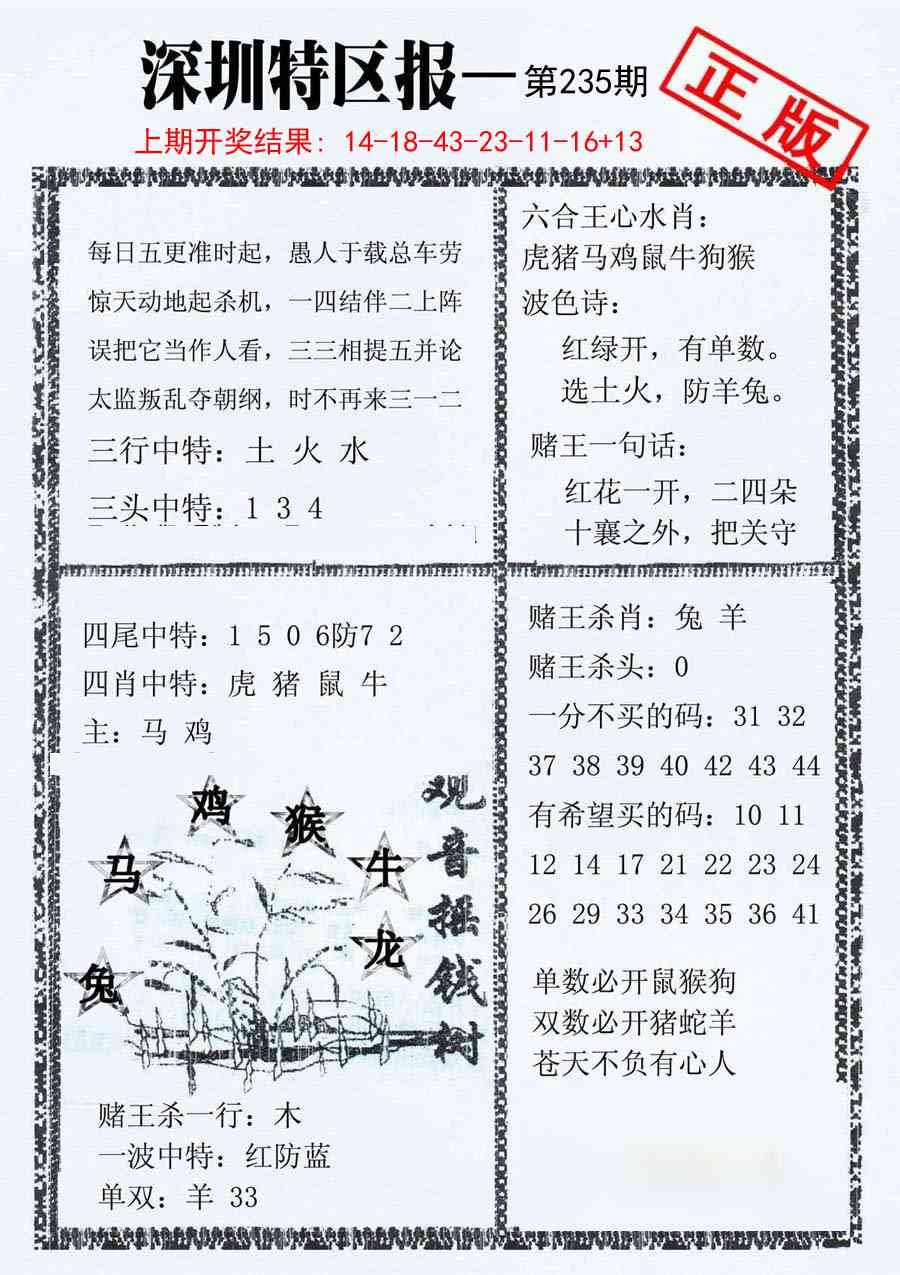 深圳特区报一第235期
正版
上期开奖结果：14-18-43-23-11-16+13
每日五更准时起，愚人于载总车劳
惊天动地起杀机，一四结伴二上阵
误把它当作人看，三三相提五并论
太监叛乱夺朝纲，时不再来三一二
三行中特：土 火 水
三头中特：1 3 4
六合王心水肖：
虎猪马鸡鼠牛狗猴
波色诗：
红绿开，有单数。
选土火，防羊兔。
赌王一句话：
红花一开，二四朵
十襄之外，把关守
四尾中特：1 5 0 6防7 2
四肖中特：虎 猪 鼠 牛
主：马 鸡
鸡
猴
马
牛
龙
兔
观音摇钱树
赌王杀一行：木
一波中特：红防蓝
单双：羊 33
赌王杀肖：兔 羊
赌王杀头：0
一分不买的码：31 32
37 38 39 40 42 43 44
有希望买的码：10 11
12 14 17 21 22 23 24
26 29 33 34 35 36 41
单数必开鼠猴狗
双数必开猪蛇羊
苍天不负有心人